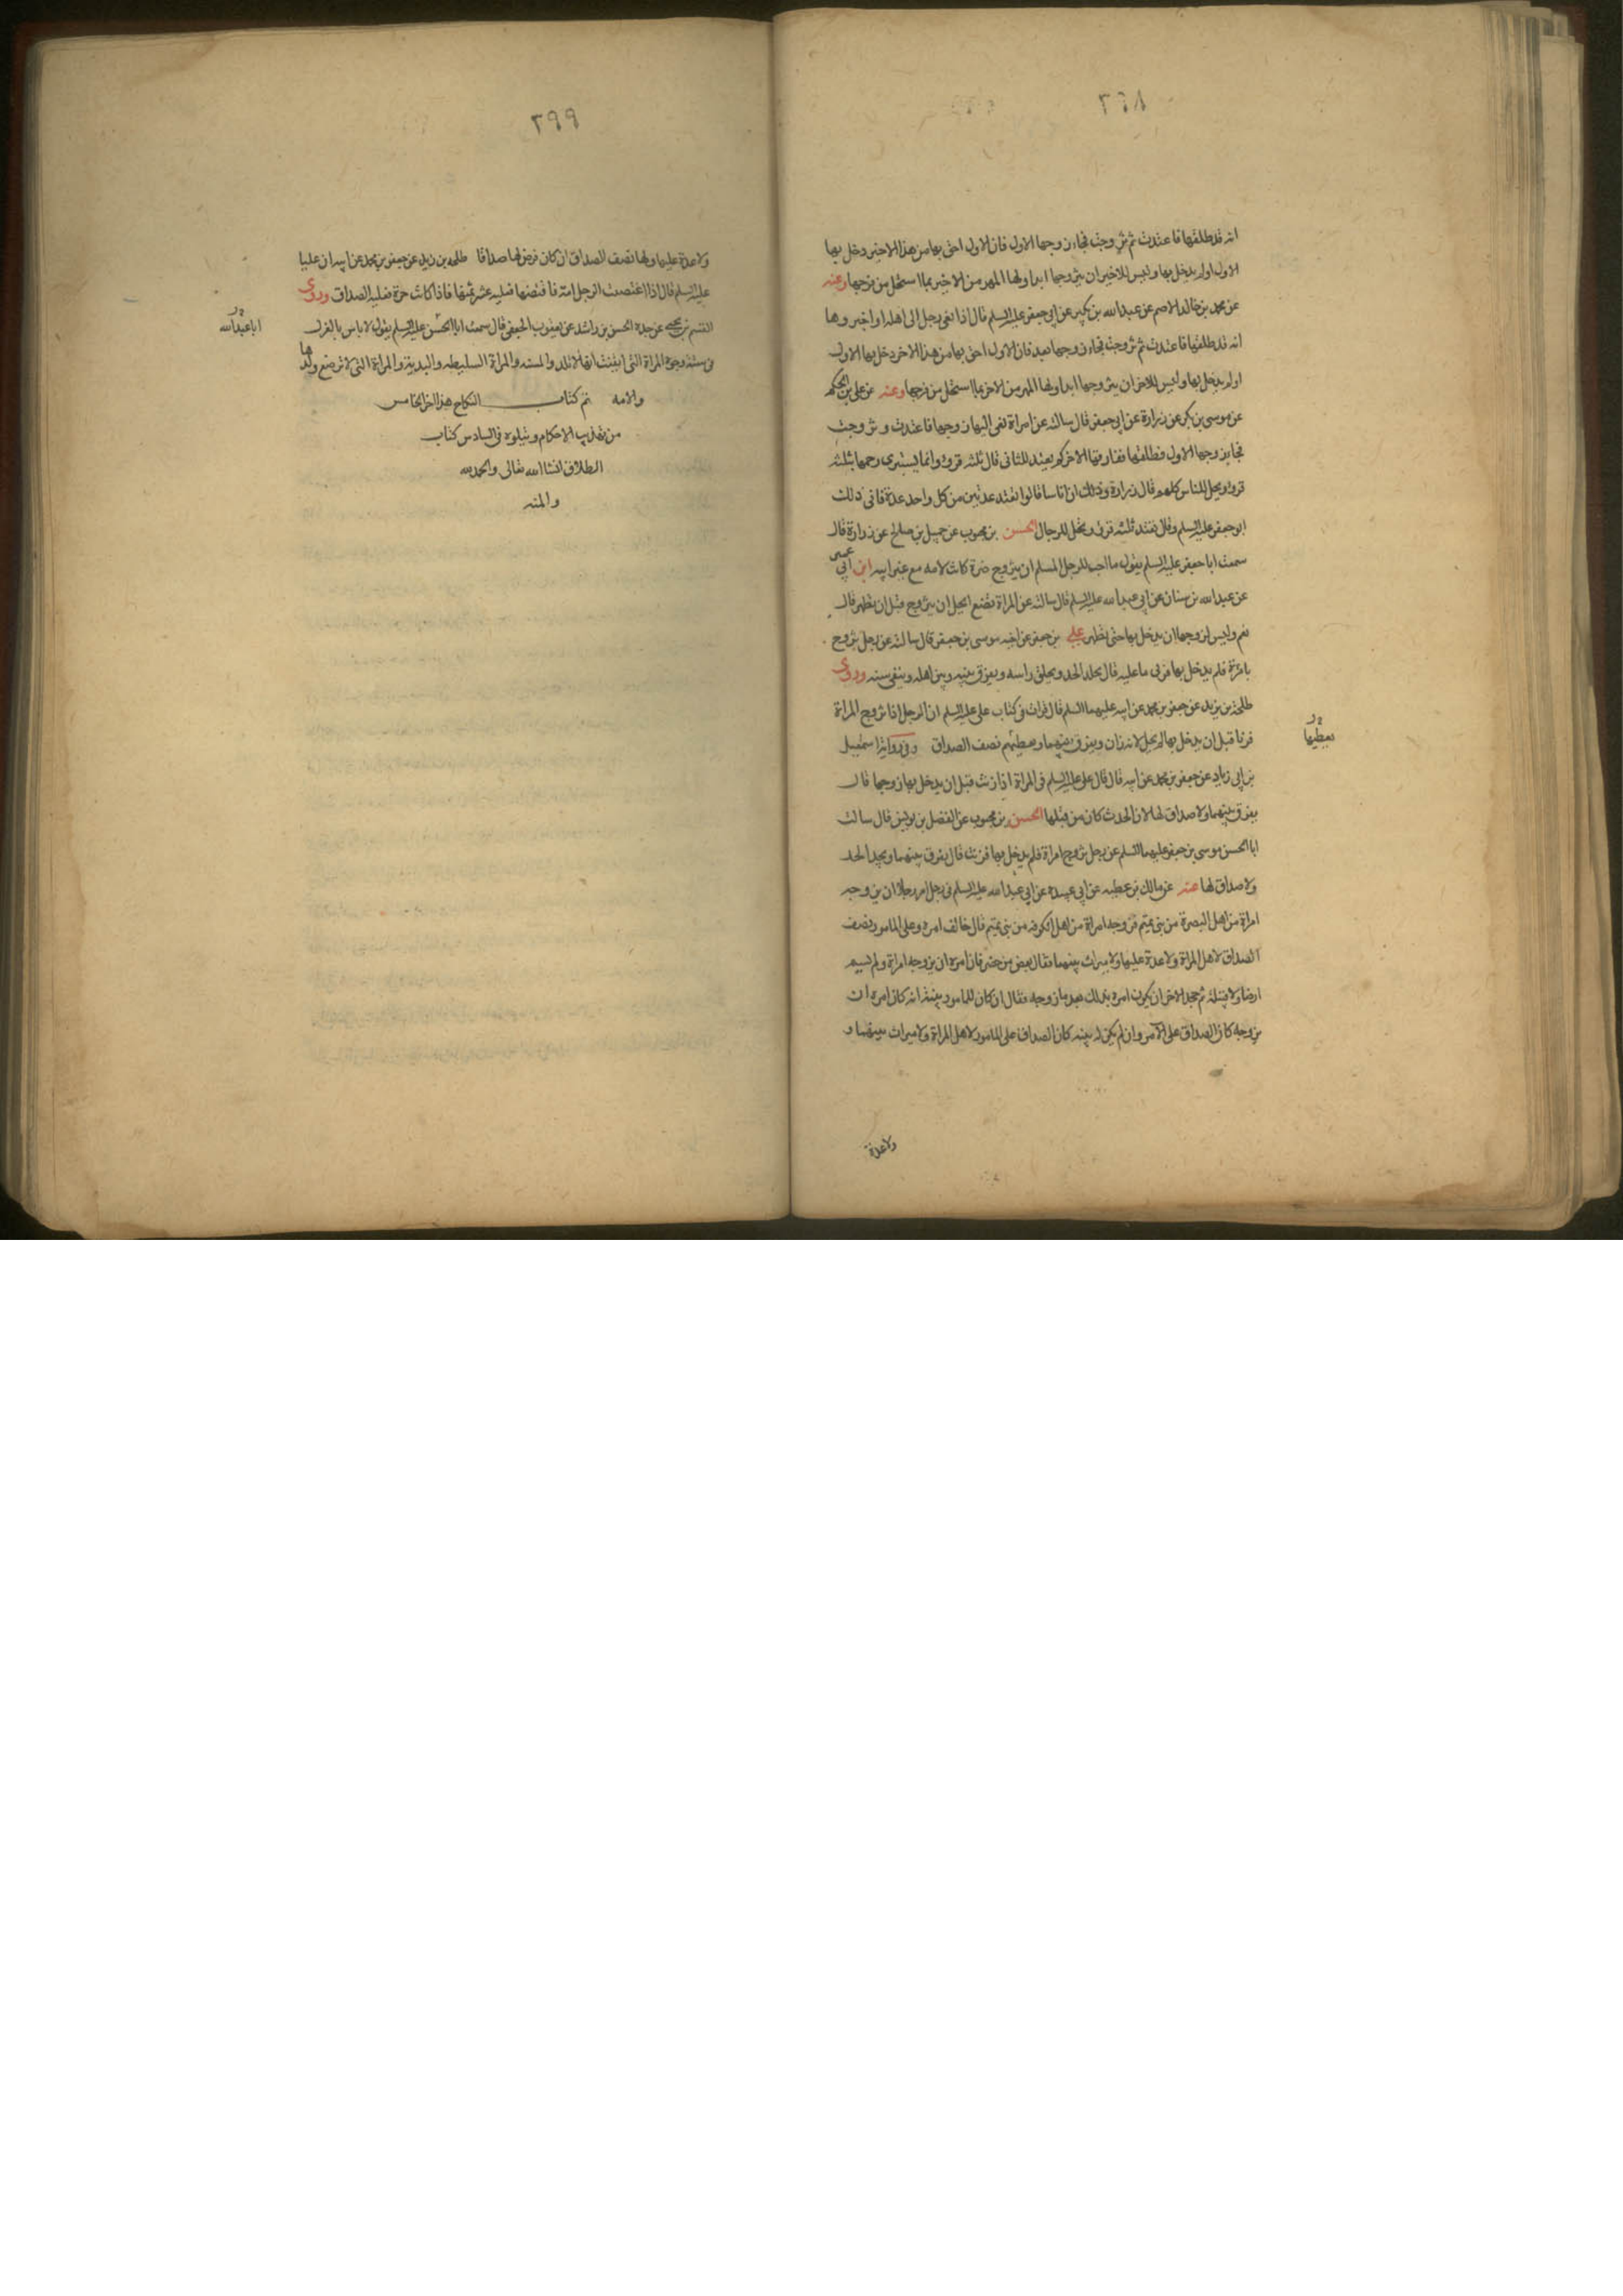 ٢٩٨
انه قد طلقها فاعتدت ثم تزوجت فجاء زوجها الاول فان الاول احق بها من هذا الاخير دخل بها
الاول اولم يدخل بها وليس للاخير ان يتزوجها ابدا ولها المهر من الاخير بما استحل من فرجها وعنه
عن محمد بن خالد الاصم عن عبدالله بن بكير عن ابي جعفر عليه السلم قال اذا نعى رجل الى اهله او اخبروها
انه قد طلقها فاعتدت ثم تزوجت فجاء زوجها بعد فان الاول احق بها من هذا الاخر دخل بها الاول
اولم يدخل بها وليس للاخر ان يتزوجها ابدا ولها المهر من الاخر بما استحل من فرجها وعنه عن علي بن الحكم
عن موسى بن بكر عن زرارة عن ابي جعفر قال سالته عن امراة نعى اليها زوجها فاعتدت وتزوجت
فجاء زوجها الاول فطلقها ففارقها الاخر كم يعتد للثاني قال ثلثه قروء وانما يستبرى رحمها بثلثه
قروء ويحل للناس كلهم قال زرارة وذلك ان اناسا قالوا تعتد عدتين من كل واحد عدة فابى ذلك
ابو جعفر عليه السلم وقال تعتد ثلثه قروء وتحل للرجال الحسن بن محبوب عن جميل بن صالح عن زرارة قال
سمعت ابا جعفر عليه السلم يقول ما احب للرجل المسلم ان يتزوج ضرة كانت لامه مع غير ابيه ابن ابي عمير
عن عبدالله بن سنان عن ابي عبدالله عليه السلم قال سالته عن المراة تضع ايحل ان يتزوج قبل ان تطهر قال
نعم وليس لزوجها ان يدخل بها حتى تطهر علي بن جعفر عن اخيه موسى بن جعفر قال سالته عن رجل تزوج
بامراة فلم يدخل بها فزنى ما عليه قال يجلد الحد ويحلق راسه ويفرق بينه وبين اهله وينفى سنه وروى
طلحة بن يزيد عن جعفر بن محمد عن ابيه عليهما السلم قال قرات في كتاب علي عليه السلم ان الرجل اذا تزوج المراة
فزنا قبل ان يدخل بها لم يحل لانه زان ويفرق بينهما ويعطيهم نصف الصداق وفي رواية اسمعيل
يعطيها
بن ابي زياد عن جعفر بن محمد عن ابيه قال قال علي عليه السلم في المراة اذا زنت قبل ان يدخل بها زوجها قال
يفرق بينهما ولا صداق لها لان الحدث كان من قبلها الحسن بن محبوب عن الفضل بن يونس قال سالت
ابا الحسن موسى بن جعفر عليهما السلم عن رجل تزوج امراة فلم يدخل بها فزنت قال يفرق بينهما ويحد الحد
ولا صداق لها عنه عن مالك بن عطيه عن ابي عبيدة عن ابي عبدالله عليه السلم في رجل امر رجلا ان يزوجه
امراة من اهل البصرة من بني تميم فزوجه امراة من اهل الكوفه من بني تميم قال خالف امره وعلى المامور نصف
الصداق لاهل المراة ولا عدة عليها ولا ميراث بينهما فقال بعض من حضر فان امره ان يزوجه امراة ولم يسم
ارضا ولا قبيلة ثم جحد الاخر ان يكون امره بذلك بعد ما زوجه فقال ان كان للمامور بينة انه كان امره ان
يزوجه كان الصداق على الآمر وان لم يكن له بينه كان الصداق على المامور لاهل المراة ولا ميراث بينهما و
ولا عدة
٢٩٩
ولا عدة عليها ولها نصف الصداق ان كان فرض لها صداقا طلحه بن زيد عن جعفر بن محمد عن ابيه ان عليا
عليه السلم قال اذا اغتصبت الرجل امة فاقتضها فعليه عشر ثمنها فاذا كانت حرة فعليه الصداق وروى
القسم بن يحيى عن جده الحسن بن راشد عن يعقوب الجعفي قال سمعت ابا الحسن عليه السلم يقول لا باس بالعزل
ابا عبدالله
في سته وجوه المراة التي ايقنت انها لا تلد والمسنه والمراة السليطه والبذية والمراة التي لا ترضع ولدها
والامه تم كتاب النكاح هذا الجز الخامس
من تهذيب الاحكام ويتلوه في السادس كتاب
الطلاق انشا الله تعالى والحمد لله
والمنه